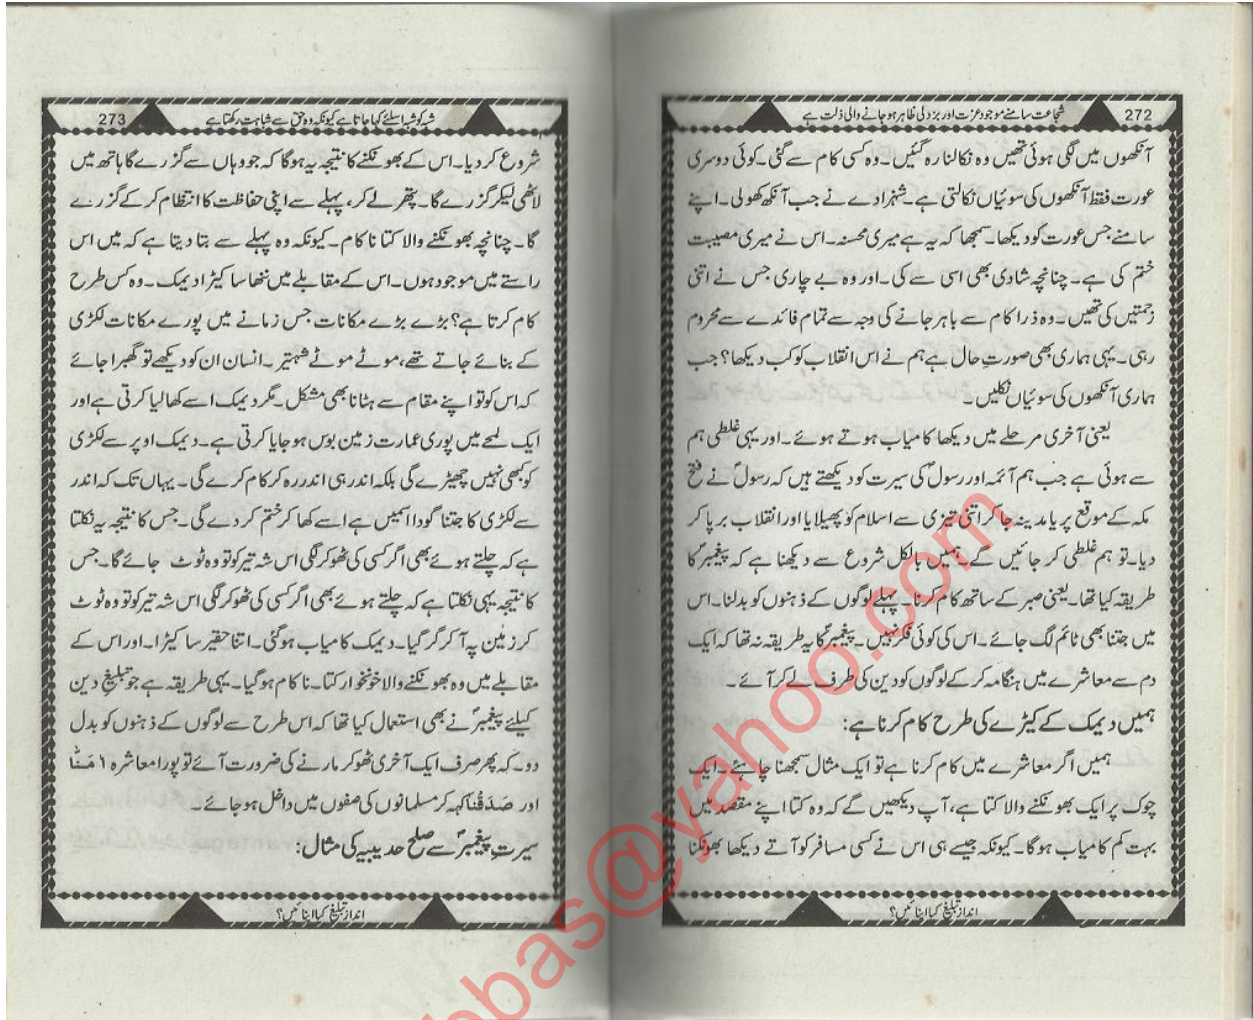 272
شجاعت سامنے موجود عزت اور بزدلی ظاہر ہو جانے والی ذلت ہے
آنکھوں میں لگی ہوئی تھیں وہ نکالنا رہ گئیں۔ وہ کسی کام سے گئی۔ کوئی دوسری
عورت فقط آنکھوں کی سوئیاں نکالتی ہے۔ شہزادے نے جب آنکھ کھولی۔ اپنے
سامنے جس عورت کو دیکھا۔ سمجھا کہ یہ ہے میری محسنہ۔ اس نے میری مصیبت
ختم کی ہے۔ چنانچہ شادی بھی اسی سے کی۔ اور وہ بے چاری جس نے اتنی
زحمتیں کی تھیں۔ وہ ذرا کام سے باہر جانے کی وجہ سے تمام فائدے سے محروم
رہی۔ یہی ہماری بھی صورتِ حال ہے ہم نے اس انقلاب کو کب دیکھا؟ جب
ہماری آنکھوں کی سوئیاں نکلیں۔
یعنی آخری مرحلے میں دیکھا کامیاب ہوتے ہوئے۔ اور یہی غلطی ہم
سے ہوئی ہے جب ہم آئمہ اور رسولؐ کی سیرت کو دیکھتے ہیں کہ رسولؐ نے فتح
مکہ کے موقع پر یا مدینہ جا کر اتنی تیزی سے اسلام کو پھیلایا اور انقلاب برپا کر
دیا۔ تو ہم غلطی کر جائیں گے۔ ہمیں بالکل شروع سے دیکھنا ہے کہ پیغمبرؐ کا
طریقہ کیا تھا۔ یعنی صبر کے ساتھ کام کرنا۔ پہلے لوگوں کے ذہنوں کو بدلنا۔ اس
میں جتنا بھی ٹائم لگ جائے۔ اس کی کوئی فکر نہیں۔ پیغمبرؐ کا یہ طریقہ نہ تھا کہ ایک
دم سے معاشرے میں ہنگامہ کر کے لوگوں کو دین کی طرف لے کر آئے۔
ہمیں دیمک کے کیڑے کی طرح کام کرنا ہے:
ہمیں اگر معاشرے میں کام کرنا ہے تو ایک مثال سمجھنا چاہیئے۔ ایک
چوک پر ایک بھونکنے والا کتا ہے، آپ دیکھیں گے کہ وہ کتا اپنے مقصد میں
بہت کم کامیاب ہوگا۔ کیونکہ جیسے ہی اس نے کسی مسافر کو آتے دیکھا بھونکنا
اندازِ تبلیغ کیا اپنائیں؟
273
شبہ کو شبہ اسلئے کہا جاتا ہے کیونکہ وہ حق سے شباہت رکھتا ہے
شروع کر دیا۔ اس کے بھونکنے کا نتیجہ یہ ہوگا کہ جو وہاں سے گزرے گا ہاتھ میں
لاٹھی لیکر گزرے گا۔ پتھر لے کر، پہلے سے اپنی حفاظت کا انتظام کر کے گزرے
گا۔ چنانچہ بھونکنے والا کتا ناکام۔ کیونکہ وہ پہلے سے بتا دیتا ہے کہ میں اس
راستے میں موجود ہوں۔ اس کے مقابلے میں ننھا سا کیڑا دیمک۔ وہ کس طرح
کام کرتا ہے؟ بڑے بڑے مکانات جس زمانے میں پورے مکانات لکڑی
کے بنائے جاتے تھے، موٹے موٹے شہتیر۔ انسان ان کو دیکھے تو گھبرا جائے
کہ اس کو تو اپنے مقام سے ہٹانا بھی مشکل۔ مگر دیمک اسے کھا لیا کرتی ہے اور
ایک لمحے میں پوری عمارت زمین بوس ہو جایا کرتی ہے۔ دیمک اوپر سے لکڑی
کو کبھی نہیں چھیڑے گی بلکہ اندر ہی اندر رہ کر کام کرے گی۔ یہاں تک کہ اندر
سے لکڑی کا جتنا گودا اسمیں ہے اسے کھا کر ختم کر دے گی۔ جس کا نتیجہ یہ نکلتا
ہے کہ چلتے ہوئے بھی اگر کسی کی ٹھوکر لگی اس شہ تیر کو تو وہ ٹوٹ جائے گا۔ جس
کا نتیجہ یہی نکلتا ہے کہ چلتے ہوئے بھی اگر کسی کی ٹھوکر لگی اس شہ تیر کو تو وہ ٹوٹ
کر زمین پہ آ کر گر گیا۔ دیمک کامیاب ہوگئی۔ اتنا حقیر سا کیڑا۔ اور اس کے
مقابلے میں وہ بھونکنے والا خونخوار کتا۔ ناکام ہوگیا۔ یہی طریقہ ہے جو تبلیغِ دین
کیلئے پیغمبرؐ نے بھی استعمال کیا تھا کہ اس طرح سے لوگوں کے ذہنوں کو بدل
دو۔ کہ پھر صرف ایک آخری ٹھوکر مارنے کی ضرورت آئے تو پورا معاشرہ ا مَنَّا
اور صَدَقْنَا کہہ کر مسلمانوں کی صفوں میں داخل ہو جائے۔
سیرتِ پیغمبرؐ سے صلح حدیبیہ کی مثال:
اندازِ تبلیغ کیا اپنائیں؟
bbas@yahoo.com